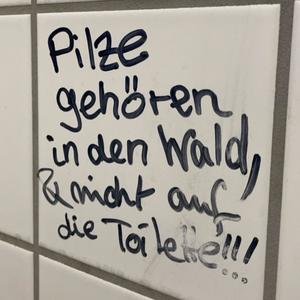 Pilze
gehören
in den Wald,
& nicht auf
die Toilette!!!